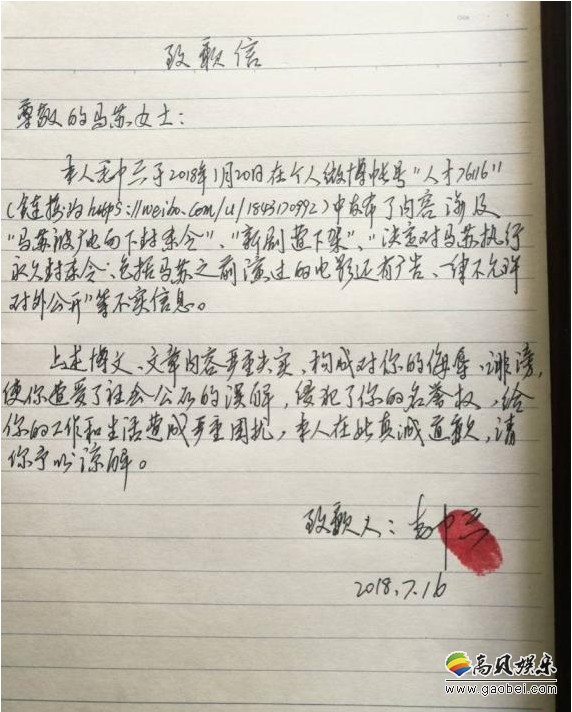 致歉信
尊敬的马苏女士：
本人 中 于2018年1月20日在个人微博帐号"人才76116"
（链接为https://weibo.com/u/1843170992）中发布了内容涉及
"马苏被广电向下封杀令"、"新剧遭下架"、"决定对马苏执行
永久封杀令：包括马苏之前演过的电影还有广告、一律不允许
对外公开"等不实信息。
上述博文、文章内容严重失实，构成对你的侮辱、诽谤，
使你遭受了社会公众的误解，侵犯了你的名誉权，给
你的工作和生活造成严重困扰，本人在此真诚道歉，请
你予以谅解。
致歉人：
2018.7.16
高贝娱乐
www.gaobei.com